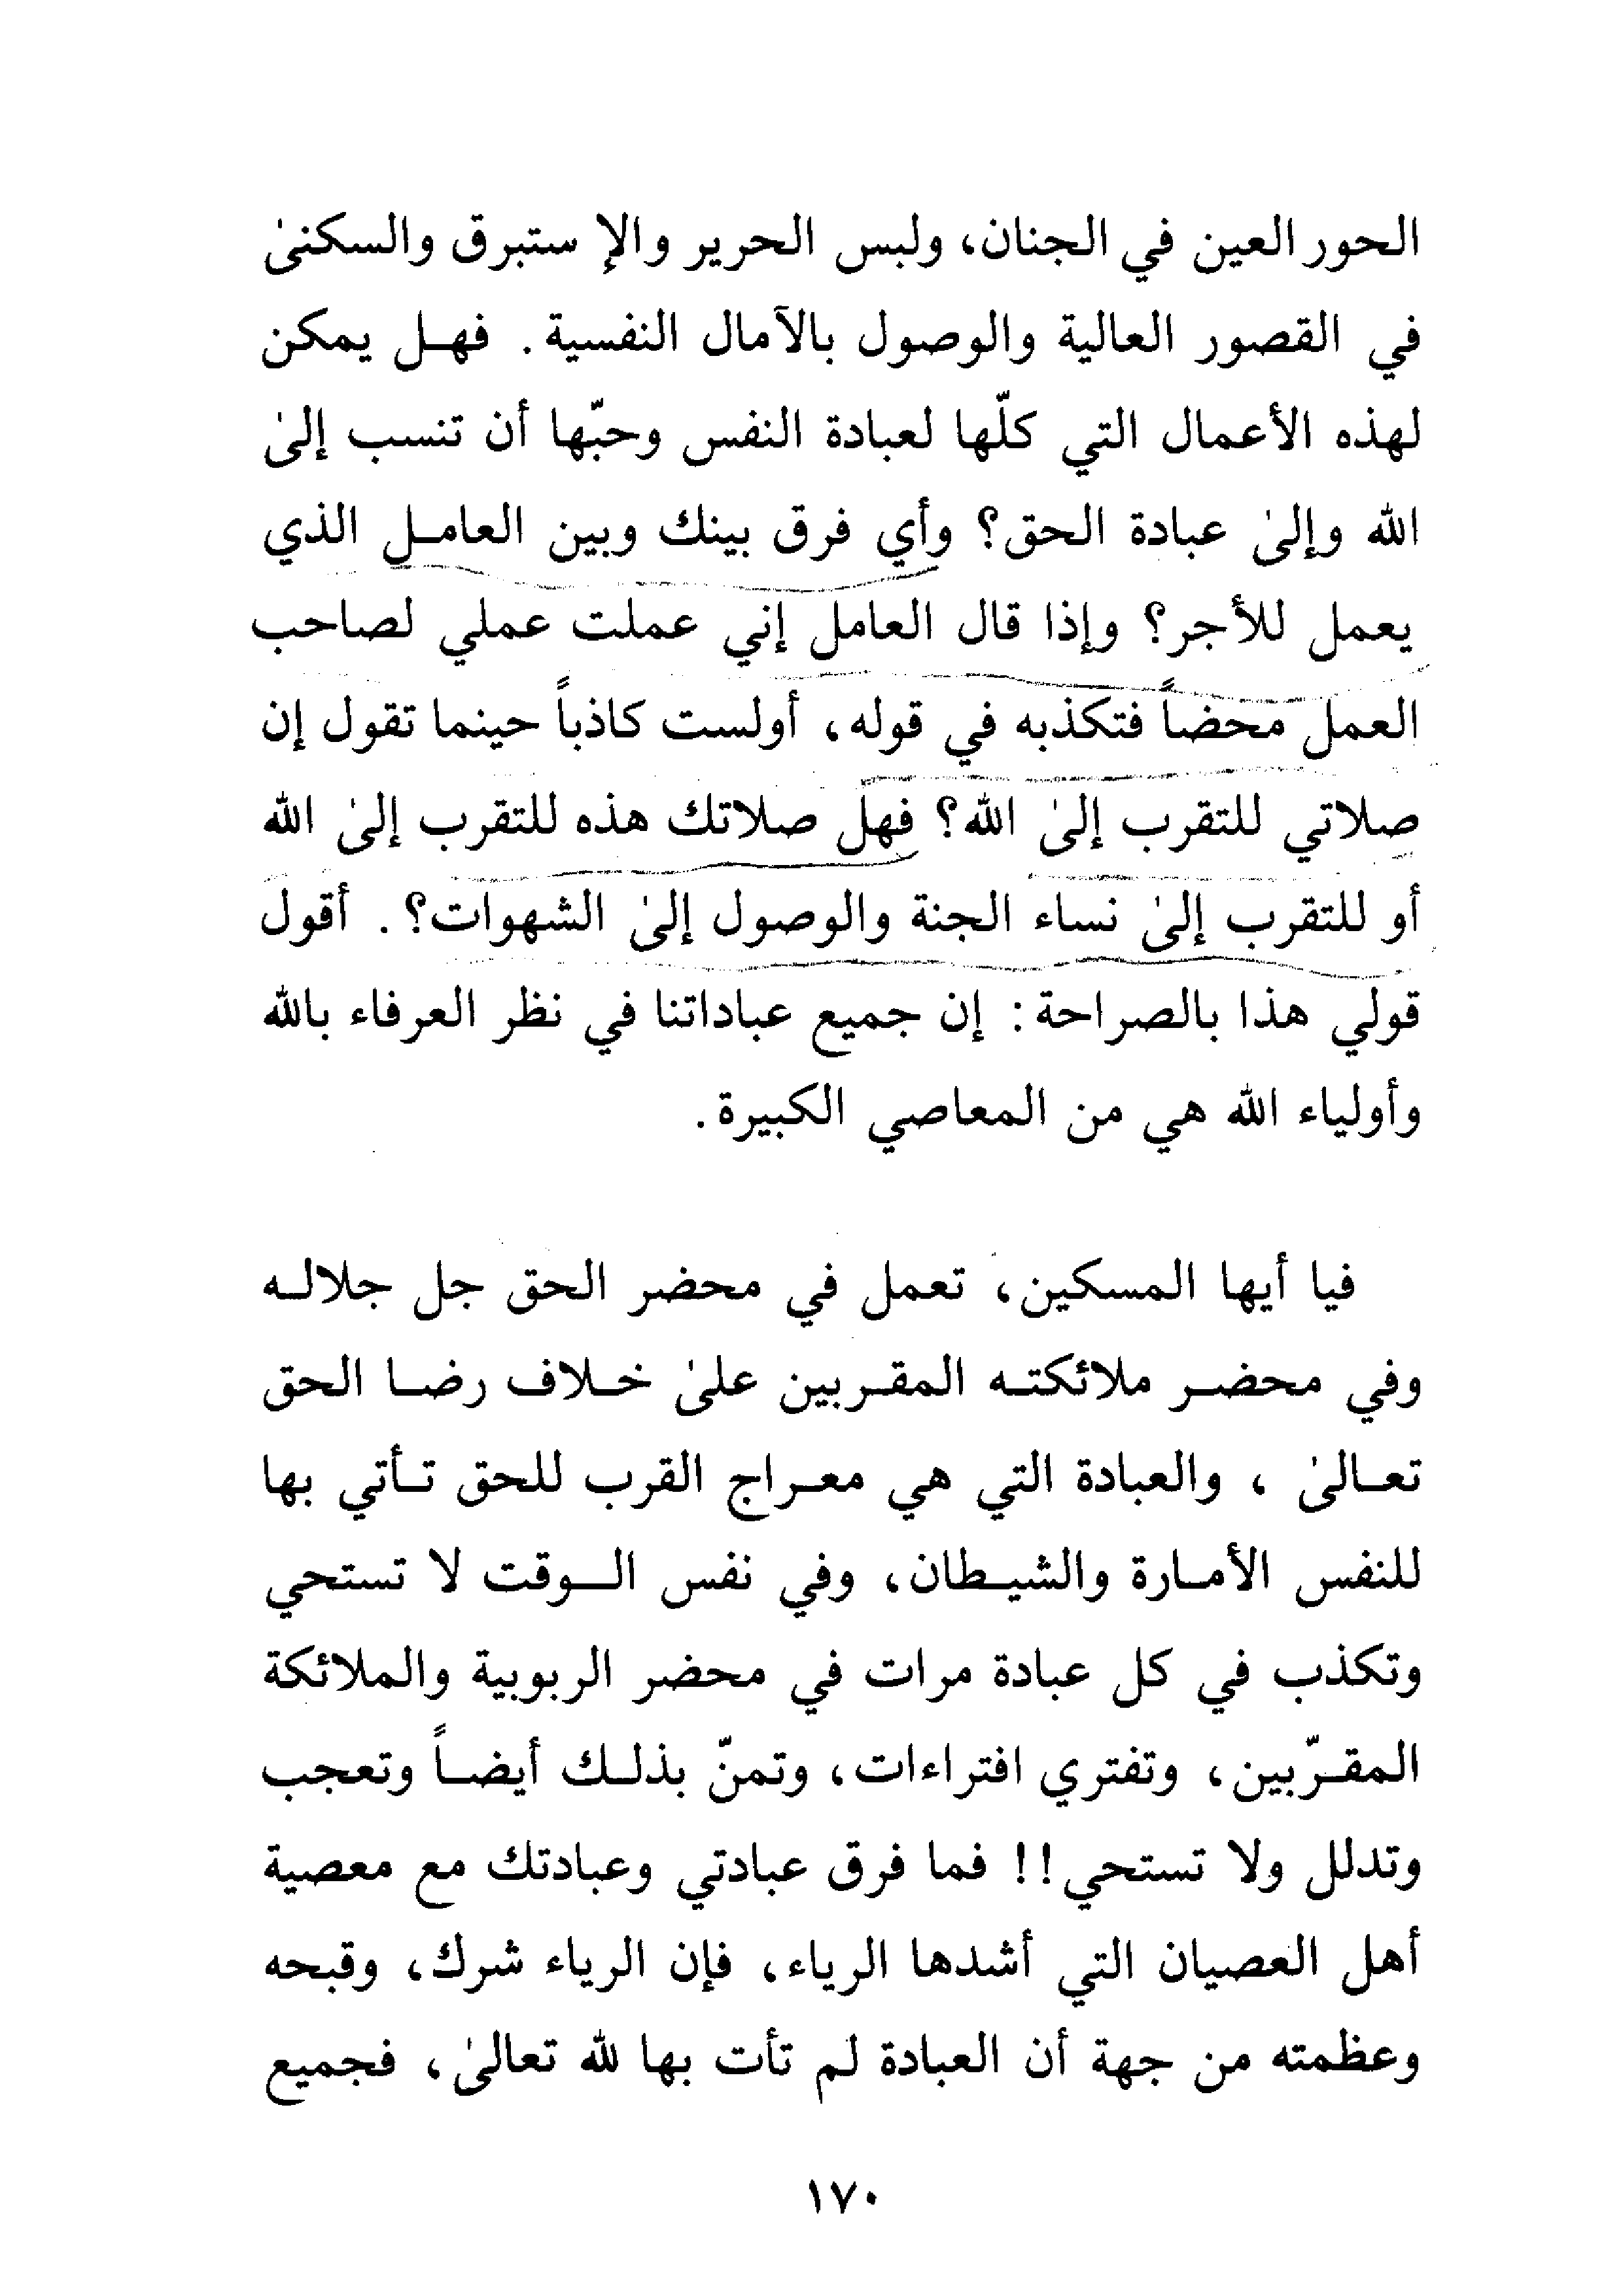 الحور العين في الجنان، ولبس الحرير والإ ستبرق والسكنىٰ
في القصور العالية والوصول بالآمال النفسية. فهل يمكن
لهذه الأعمال التي كلّها لعبادة النفس وحبّها أن تنسب إلىٰ
الله وإلىٰ عبادة الحق؟ وأي فرق بينك وبين العامل الذي
يعمل للأجر؟ وإذا قال العامل إني عملت عملي لصاحب
العمل محضاً فتكذبه في قوله، أولست كاذباً حينما تقول إن
صلاتي للتقرب إلىٰ الله؟ فهل صلاتك هذه للتقرب إلىٰ الله
أو للتقرب إلىٰ نساء الجنة والوصول إلىٰ الشهوات؟. أقول
قولي هذا بالصراحة: إن جميع عباداتنا في نظر العرفاء بالله
وأولياء الله هي من المعاصي الكبيرة.
فيا أيها المسكين، تعمل في محضر الحق جل جلاله
وفي محضر ملائكته المقربين علىٰ خلاف رضا الحق
تعالىٰ، والعبادة التي هي معراج القرب للحق تأتي بها
للنفس الأمارة والشيطان، وفي نفس الوقت لا تستحي
وتكذب في كل عبادة مرات في محضر الربوبية والملائكة
المقرّبين، وتفتري افتراءات، وتمنّ بذلك أيضاً وتعجب
وتدلل ولا تستحي!! فما فرق عبادتي وعبادتك مع معصية
أهل العصيان التي أشدها الرياء، فإن الرياء شرك، وقبحه
وعظمته من جهة أن العبادة لم تأت بها لله تعالىٰ، فجميع
١٧٠